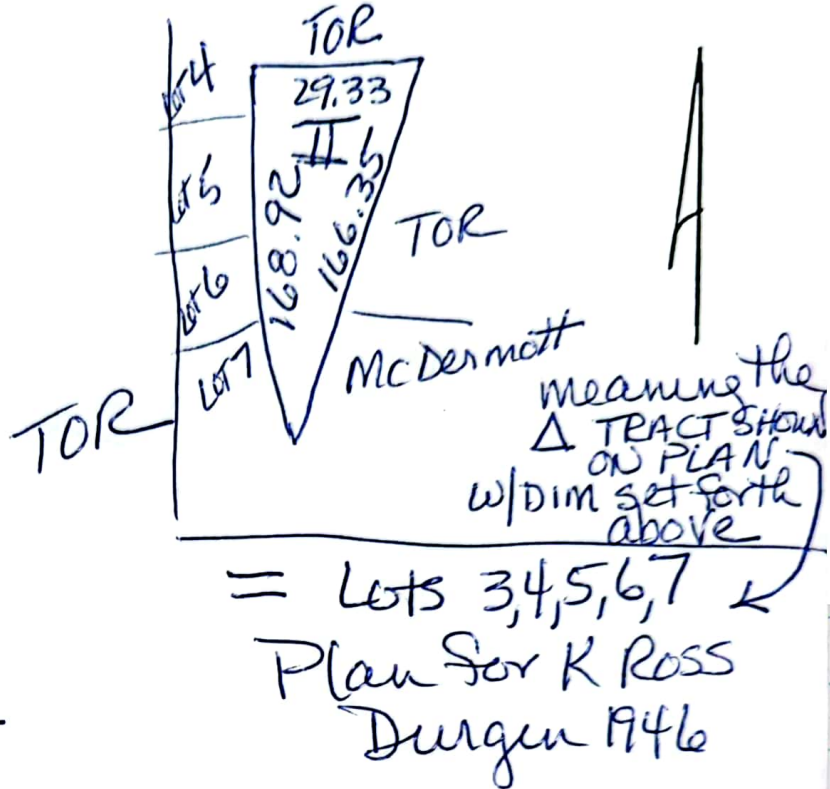 TOR
Lot 4
29.33
II
Lot 5
168.92
166.35
TOR
Lot 6
Lot 7
McDermott
TOR
meaning the
Δ TRACT SHOWN
ON PLAN
W/DIM set forth
above
= Lots 3,4,5,6,7
Plan for K Ross
Durgen 1946